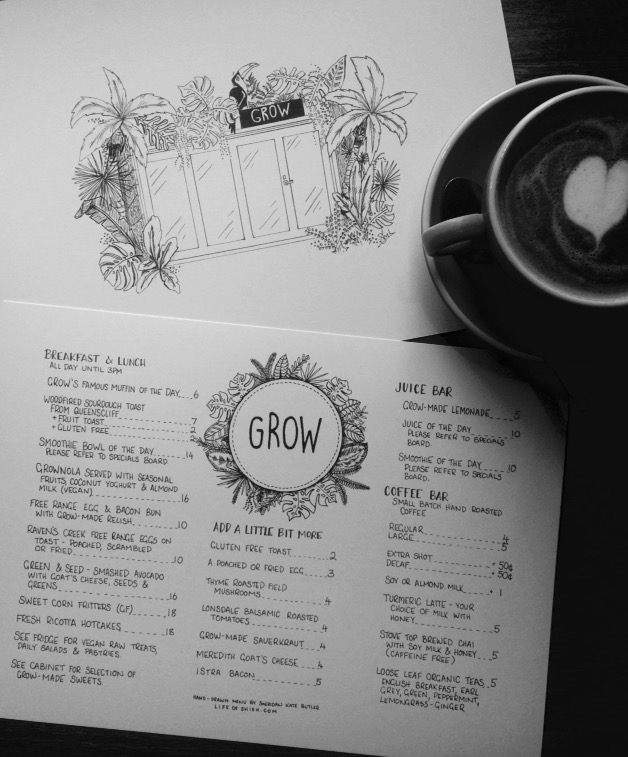 GROW
BREAKFAST & LUNCH
ALL DAY UNTIL 3PM
GROW'S FAMOUS MUFFIN OF THE DAY 6
WOODFIRED SOURDOUGH TOAST
FROM QUEENSCLIFF 7
+ FRUIT TOAST 2
+ GLUTEN FREE 2
SMOOTHIE BOWL OF THE DAY 14
PLEASE REFER TO SPECIALS BOARD.
GROWNOLA SERVED WITH SEASONAL
FRUITS, COCONUT YOGHURT & ALMOND
MILK (VEGAN) 16
FREE RANGE EGG & BACON BUN
WITH GROW-MADE RELISH 10
RAVEN'S CREEK FREE RANGE EGGS ON
TOAST - POACHED, SCRAMBLED
OR FRIED 10
GREEN & SEED - SMASHED AVOCADO
WITH GOAT'S CHEESE, SEEDS &
GREENS 16
SWEET CORN FRITTERS (GF) 18
FRESH RICOTTA HOTCAKES 18
SEE FRIDGE FOR VEGAN RAW TREATS,
DAILY SALADS & PASTRIES.
SEE CABINET FOR SELECTION OF
GROW-MADE SWEETS.
GROW
ADD A LITTLE BIT MORE
GLUTEN FREE TOAST 2
A POACHED OR FRIED EGG 3
THYME ROASTED FIELD
MUSHROOMS 4
LONSDALE BALSAMIC ROASTED
TOMATOES 4
GROW-MADE SAUERKRAUT 4
MEREDITH GOAT'S CHEESE 4
ISTRA BACON 5
HAND-DRAWN MENU BY SHERIDAN KATE BUTLER
LIFE OF SHISH.COM
JUICE BAR
GROW-MADE LEMONADE 5
JUICE OF THE DAY 10
PLEASE REFER TO SPECIALS
BOARD.
SMOOTHIE OF THE DAY 10
PLEASE REFER TO SPECIALS
BOARD.
COFFEE BAR
SMALL BATCH HAND ROASTED
COFFEE
REGULAR 4
LARGE 5
EXTRA SHOT + 50¢
DECAF + 50¢
SOY OR ALMOND MILK + 1
TURMERIC LATTE - YOUR
CHOICE OF MILK WITH
HONEY 5
STOVE TOP BREWED CHAI
WITH SOY MILK & HONEY 5
(CAFFEINE FREE)
LOOSE LEAF ORGANIC TEAS 5
ENGLISH BREAKFAST, EARL
GREY, GREEN, PEPPERMINT,
LEMONGRASS-GINGER